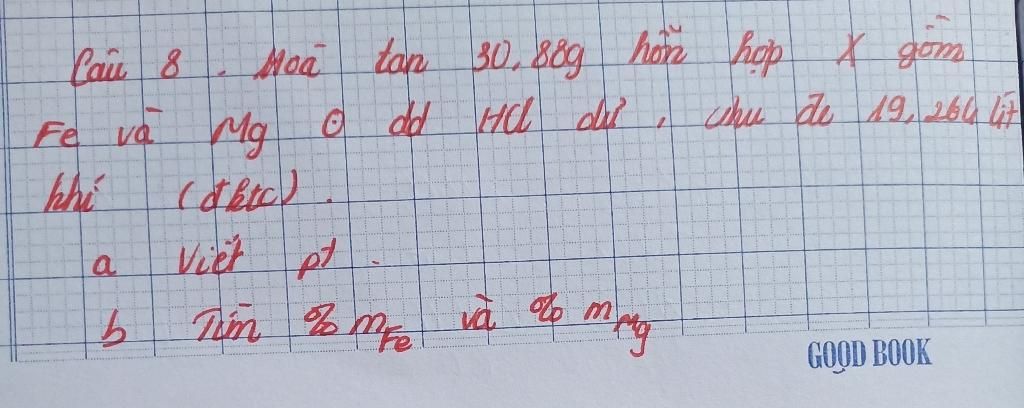 Câu 8. Hoà tan 30,88g hỗn hợp X gồm
Fe và Mg ⊙ dd HCl dư, thu đc 19,264 lít
khí (đktc).
a Viết pt.
b Tìm % mFe và % mMg
GOOD BOOK